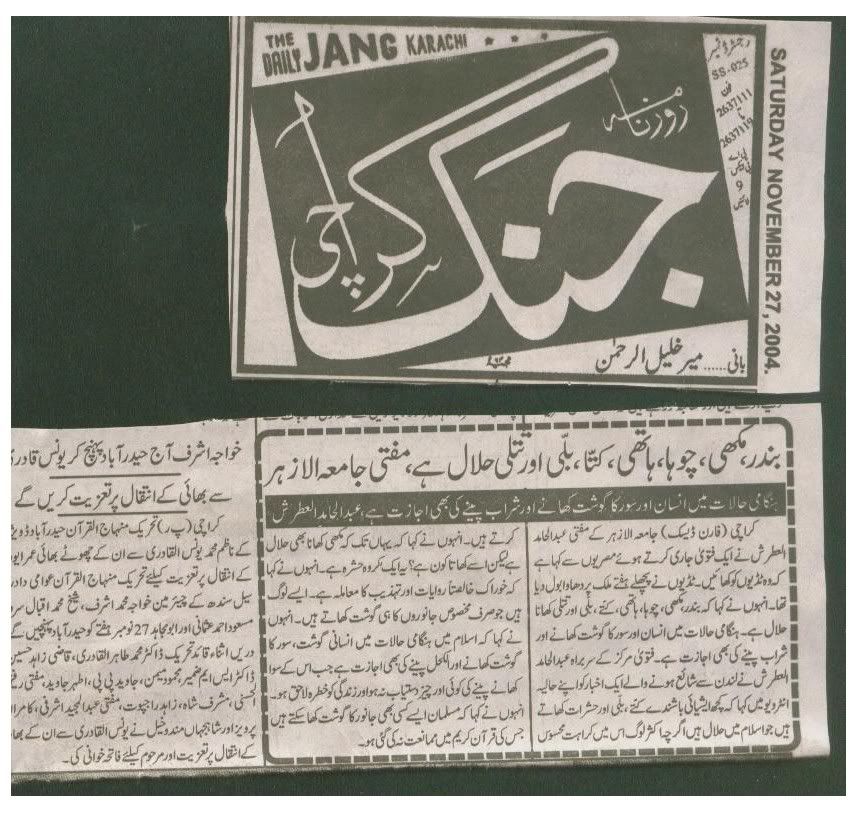 THE DAILY JANG KARACHI
رجسٹرڈ نمبر
SS-025
فون
2637111
تا
2637119
9
لائنیں
روزنامہ
جنگ کراچی
بانی ...... میر خلیل الرحمٰن
SATURDAY NOVEMBER 27, 2004.
بندر، مکھی، چوہا، ہاتھی، کتا، بلی اور تتلی حلال ہے، مفتی جامعہ الازہر
ہنگامی حالات میں انسان اور سور کا گوشت کھانے اور شراب پینے کی بھی اجازت ہے، عبدالحامد العطرش
کراچی (فارن ڈیسک) جامعہ الازہر کے مفتی عبدالحامد
العطرش نے ایک فتویٰ جاری کرتے ہوئے مصریوں سے کہا ہے
کہ وہ ٹڈیوں کو کھائیں۔ ٹڈیوں نے پچھلے ہفتے ملک پر دھاوا بول دیا
تھا۔ انہوں نے کہا کہ بندر، مکھی، چوہا، ہاتھی، کتے، بلی اور تتلی کھانا
حلال ہے۔ ہنگامی حالات میں انسان اور سور کا گوشت کھانے اور
شراب پینے کی بھی اجازت ہے۔ فتویٰ مرکز کے سربراہ عبدالحامد
العطرش نے لندن سے شائع ہونے والے ایک اخبار کو اپنے حالیہ
انٹرویو میں کہا کہ کچھ ایشیائی باشندے کتے، بلی اور حشرات کھاتے
ہیں جو اسلام میں حلال ہیں اگرچہ اکثر لوگ اس میں کراہت محسوس
کرتے ہیں۔ انہوں نے کہا کہ یہاں تک کہ مکھی کھانا بھی حلال
ہے لیکن اسے کھاتا کون ہے؟ یہ ایک مکروہ حشرہ ہے۔ انہوں نے کہا
کہ خوراک خالصتاً روایات اور تہذیب کا معاملہ ہے۔ ایسے لوگ
ہیں جو صرف مخصوص جانوروں کا ہی گوشت کھاتے ہیں۔ انہوں
نے کہا کہ اسلام میں ہنگامی حالات میں انسانی گوشت، سور کا
گوشت کھانے اور الکحل پینے کی بھی اجازت ہے جب اس کے سوا
کھانے پینے کی کوئی اور چیز دستیاب نہ ہو اور زندگی کو خطرہ لاحق ہو۔
انہوں نے کہا کہ مسلمان ایسے کسی بھی جانور کا گوشت کھا سکتے ہیں
جس کی قرآن کریم میں ممانعت نہ کی گئی ہو۔
خواجہ اشرف آج حیدر آباد پہنچ کر یونس قادری
سے بھائی کے انتقال پر تعزیت کریں گے
کراچی (پ ر) تحریک منہاج القرآن حیدر آباد ڈویژن
کے ناظم محمد یونس القادری سے ان کے چھوٹے بھائی عمر ایوب
کے انتقال پر تعزیت کیلئے تحریک منہاج القرآن عوامی دادرسی
سیل سندھ کے چیئرمین خواجہ محمد اشرف، شیخ محمد اقبال
مسعود احمد عثمانی اور ابو مجاہد 27 نومبر ہفتے کو حیدر آباد پہنچیں گے
دریں اثناء قائد تحریک ڈاکٹر محمد طاہر القادری، قاضی زاہد حسین
ڈاکٹر ایس ایم ضمیر، محمود میمن، جاوید پی پی، اطہر جاوید، مفتی
الحسنی، مشرف شاہ، زاہد راجپوت، مفتی عبدالمجید اشرفی، کامران
پرویز اور شاہجہاں مندوخیل نے یونس القادری سے ان کے بھائی
کے انتقال پر تعزیت اور مرحوم کیلئے فاتحہ خوانی کی۔